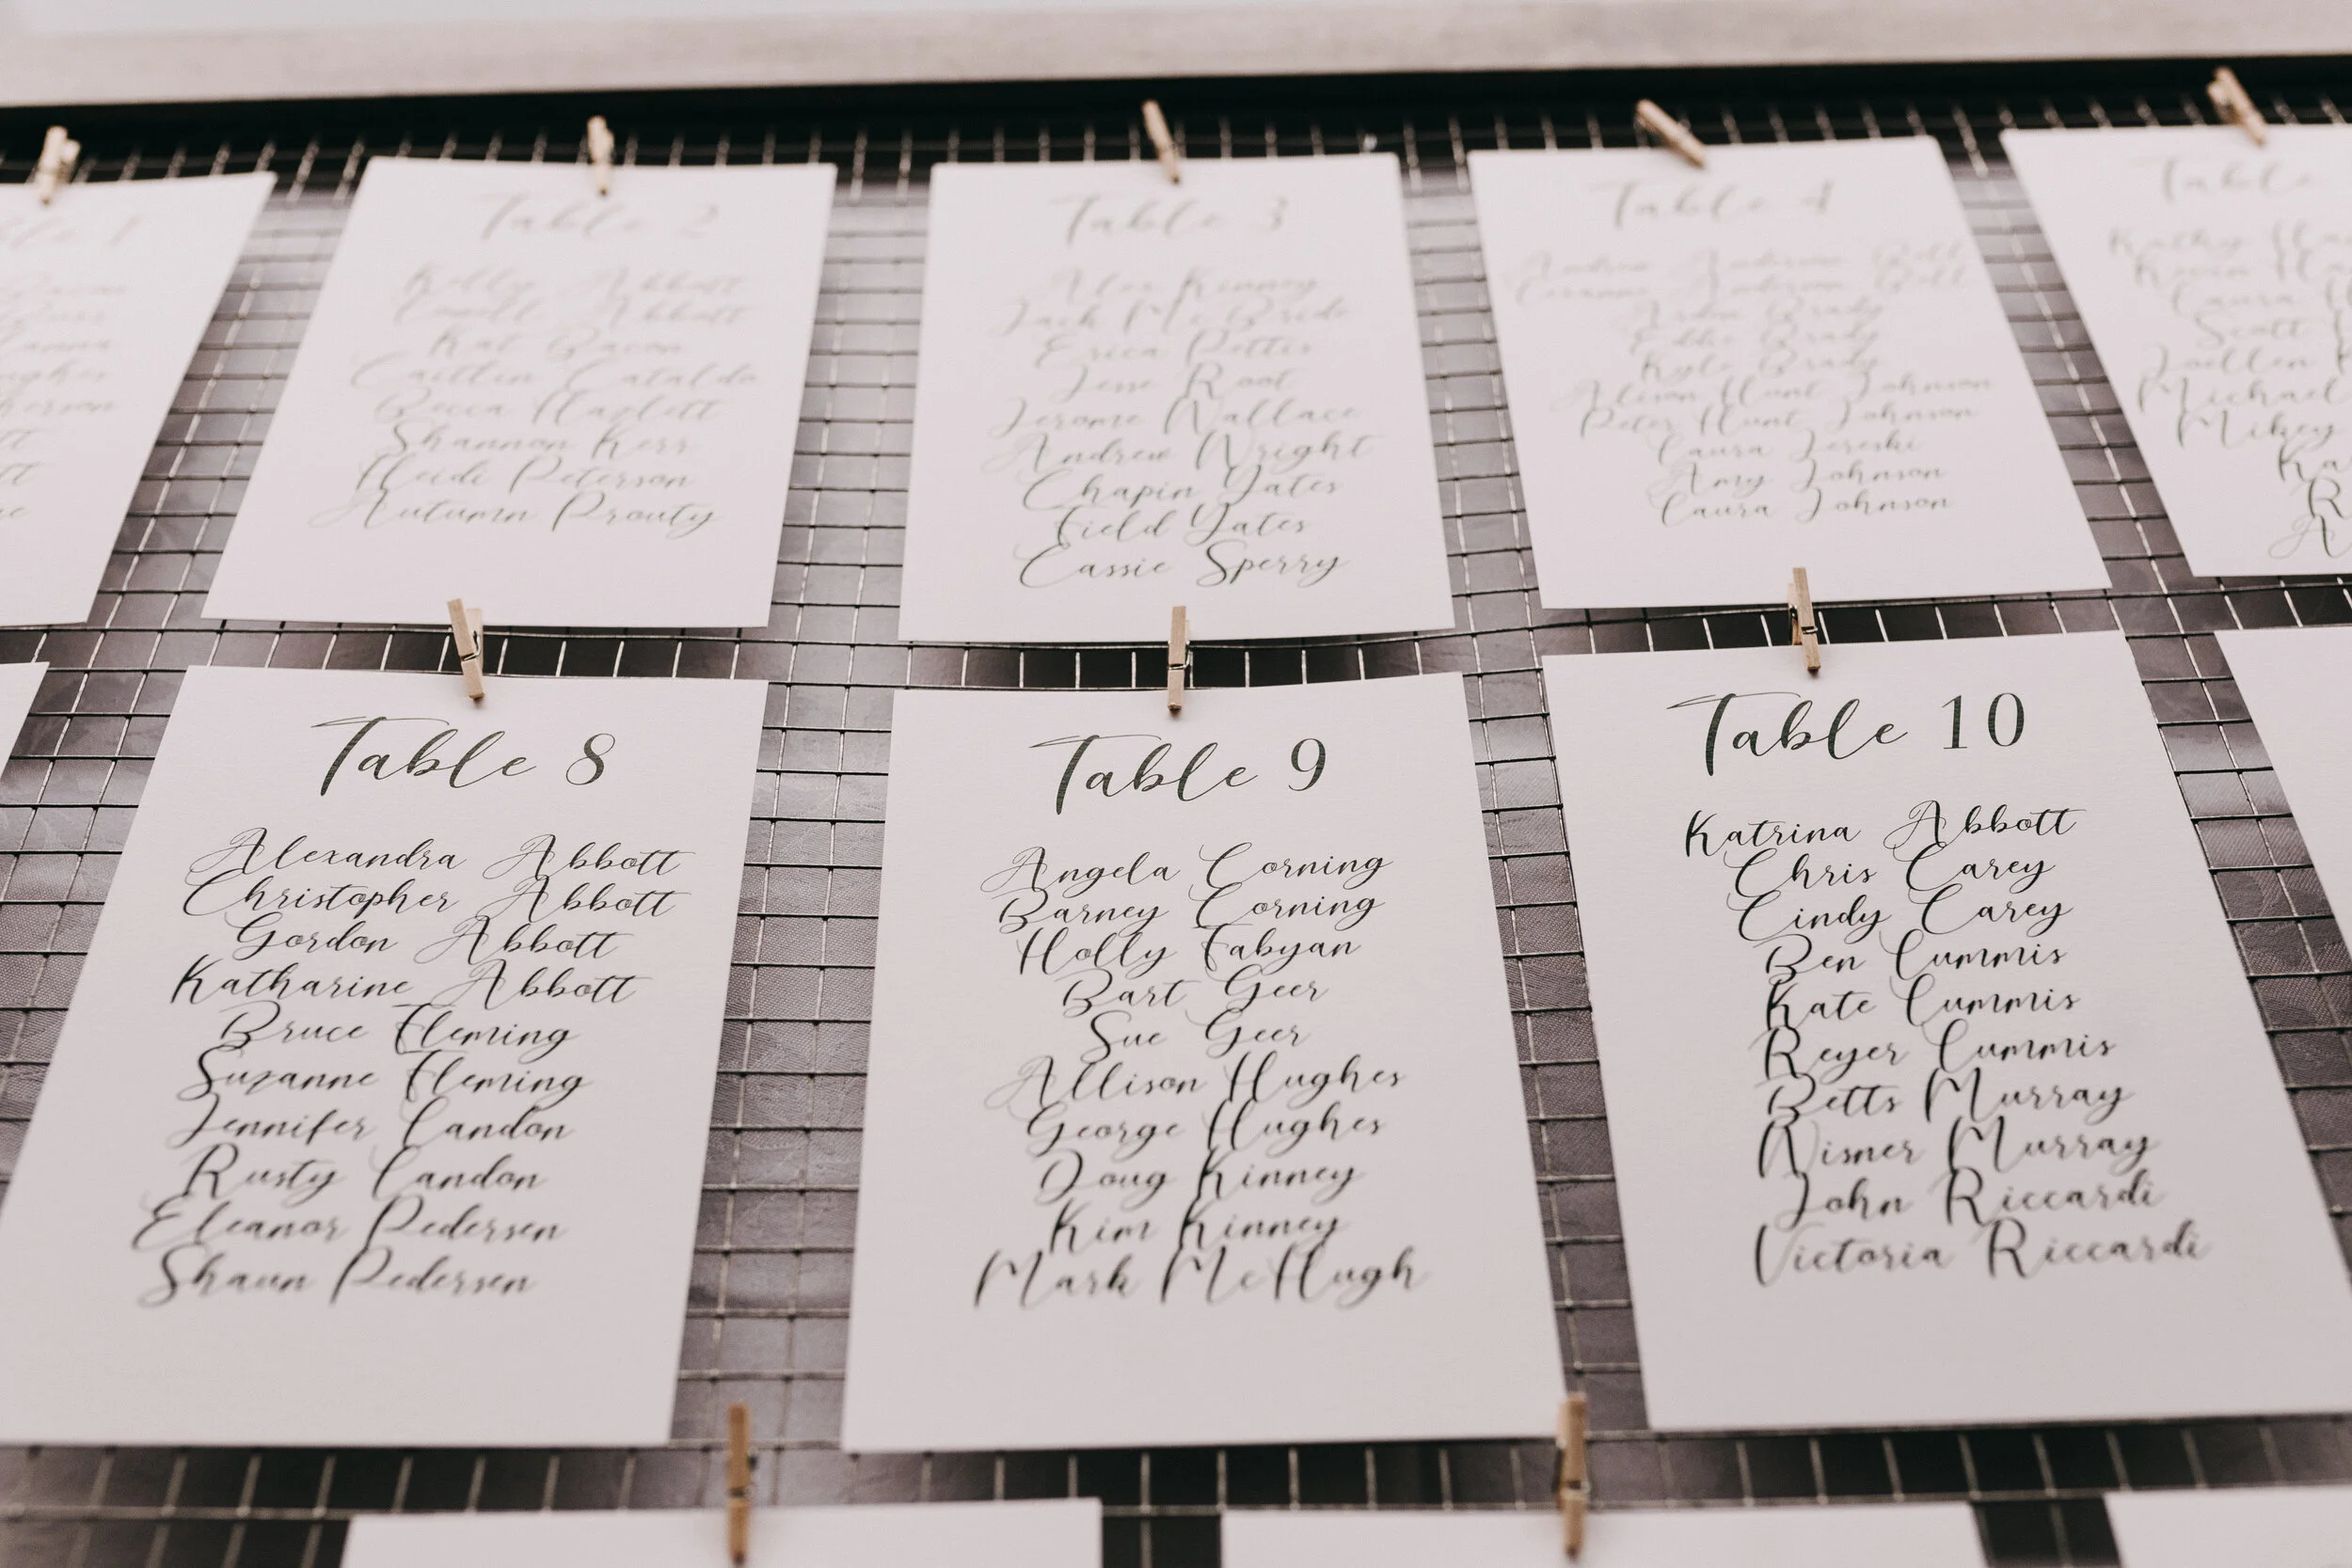 Table 2
Kelly Abbott
Lowell Abbott
Kat Bacon
Caitlin Cataldo
Becca Hazlett
Shannon Kerr
Heidi Peterson
Autumn Prouty
Table 3
Alex Kinney
Jack McBride
Erica Pettis
Jesse Root
Jerome Wallace
Andrew Wright
Chapin Yates
Field Yates
Cassie Sperry
Table 4
Brady
Brady
Kyle Brady
Alison Hunt Johnson
Peter Hunt Johnson
Laura Jereski
Amy Johnson
Laura Johnson
Table
Kathy
Kevin
Laura
Scott
Joellen
Michael
Mikey
Table 8
Alexandra Abbott
Christopher Abbott
Gordon Abbott
Katharine Abbott
Bruce Fleming
Suzanne Fleming
Jennifer Landon
Rusty Landon
Eleanor Pedersen
Shaun Pedersen
Table 9
Angela Corning
Barney Corning
Holly Fabyan
Bart Geer
Sue Geer
Allison Hughes
George Hughes
Doug Kinney
Kim Kinney
Mark McHugh
Table 10
Katrina Abbott
Chris Carey
Cindy Carey
Ben Cummis
Kate Cummis
Reyer Cummis
Betts Murray
Wisner Murray
John Riccardi
Victoria Riccardi